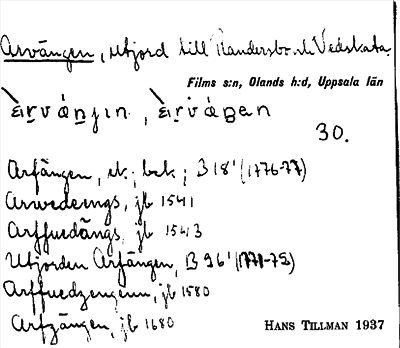 Arvängen, utjord till Randersbo o. Vedskata.
Films s:n, Olands h:d, Uppsala län
30.
Arfängen, ut. bek; B 18' (1776-77)
Arwedengs, jb 1541
Arffuedängs, jb 1543
Utjorden Arfängen, B 96' (1771-72)
Arffuedzengenn, jb 1580
Arfzängen, jb 1680
HANS TILLMAN 1937